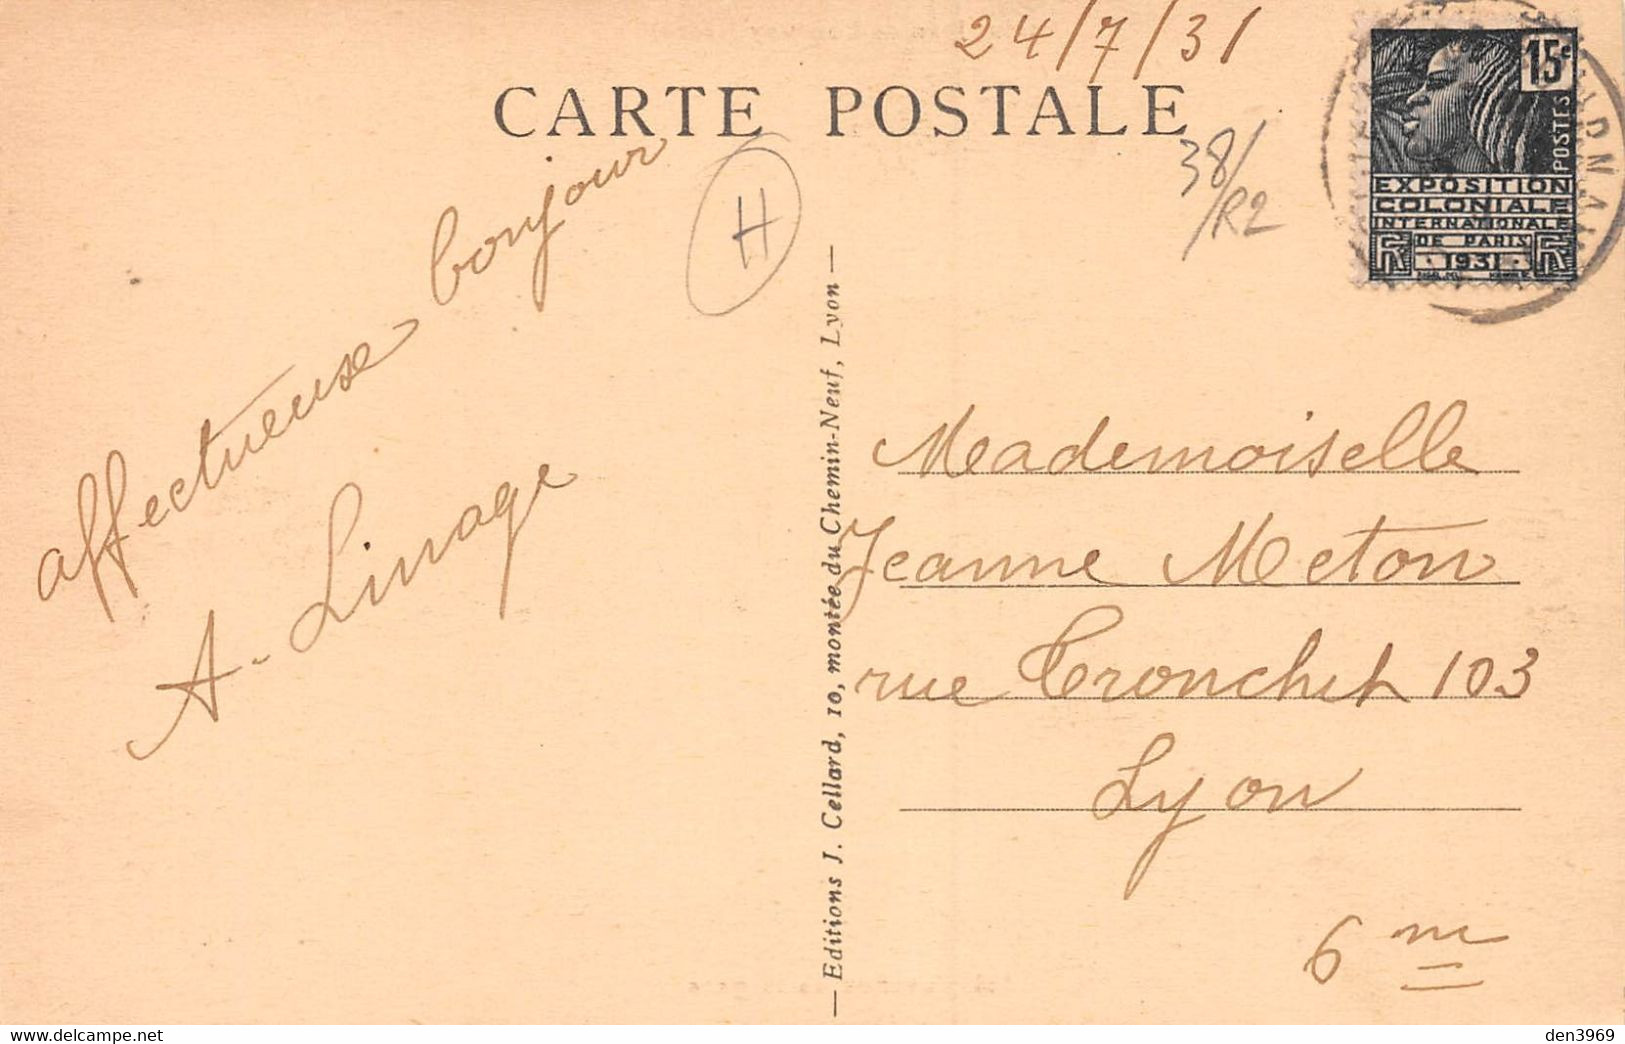 24/7/31
CARTE POSTALE
15c
POSTES
EXPOSITION
COLONIALE
INTERNATIONALE
DE PARIS
1931
38/
/R2
H
affectueuse bonjour
A. Linage
Editions J. Cellard, 10, montée du Chemin-Neuf, Lyon
Mademoiselle
Jeanne Meton
rue Tronchet 103
Lyon
6me
den3969